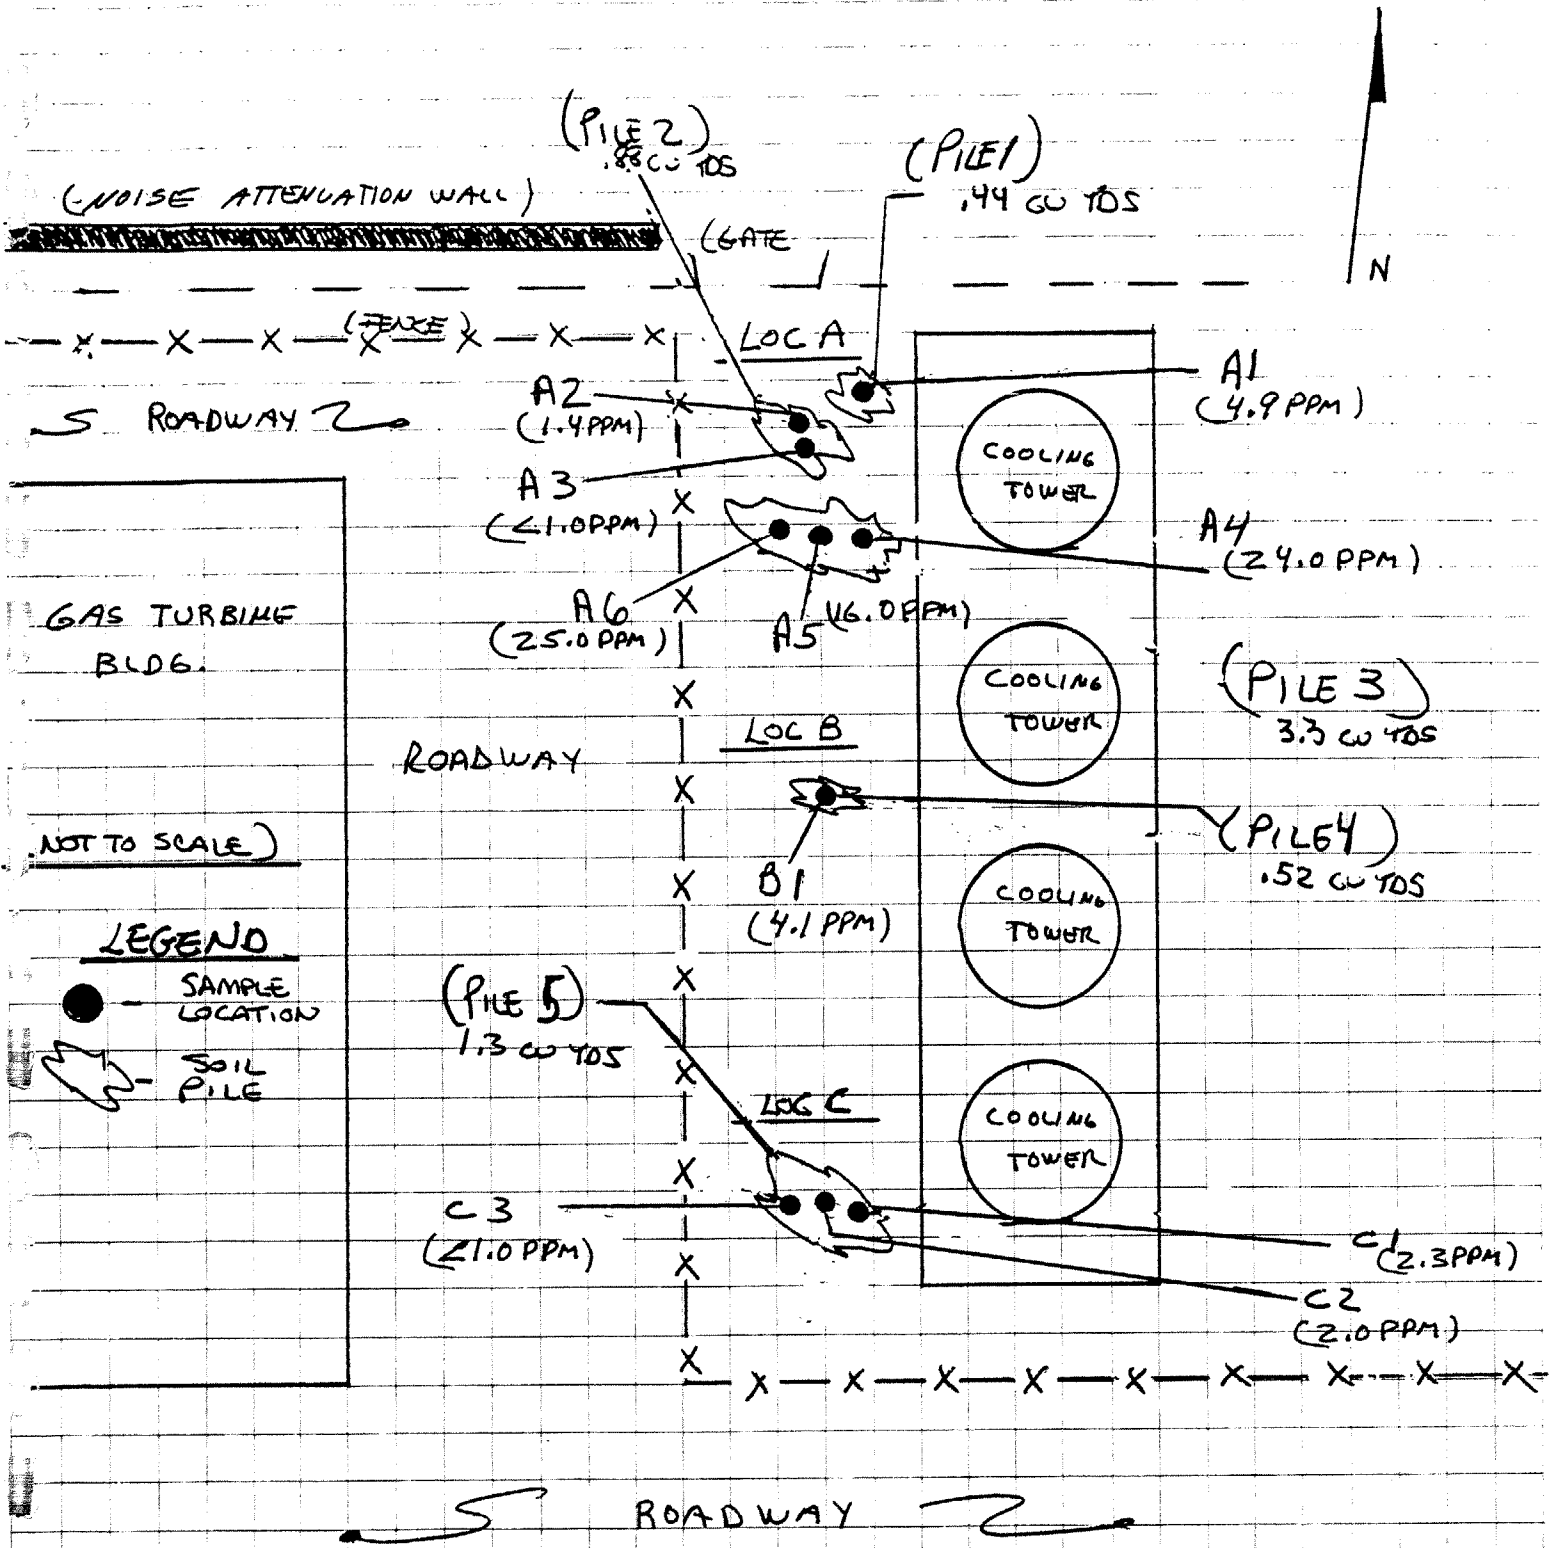 (PILE 2)
.88 CU YDS
(PILE 1)
.44 CU YDS
(NOISE ATTENUATION WALL)
(GATE
N
(FENCE)
LOC A
A1
(4.9 PPM)
A2
(1.4 PPM)
ROADWAY
COOLING
TOWER
A3
(<1.0 PPM)
A4
(24.0 PPM)
A6
(25.0 PPM)
A5 (16.0 PPM)
GAS TURBINE
BLDG.
COOLING
TOWER
(PILE 3)
3.3 CU YDS
LOC B
ROADWAY
NOT TO SCALE)
(PILE 4)
.52 CU YDS
B1
(4.1 PPM)
COOLING
TOWER
LEGEND
- SAMPLE
LOCATION
- SOIL
PILE
(PILE 5)
1.3 CU YDS
LOC C
COOLING
TOWER
C3
(<1.0 PPM)
C1
(2.3 PPM)
C2
(2.0 PPM)
ROADWAY